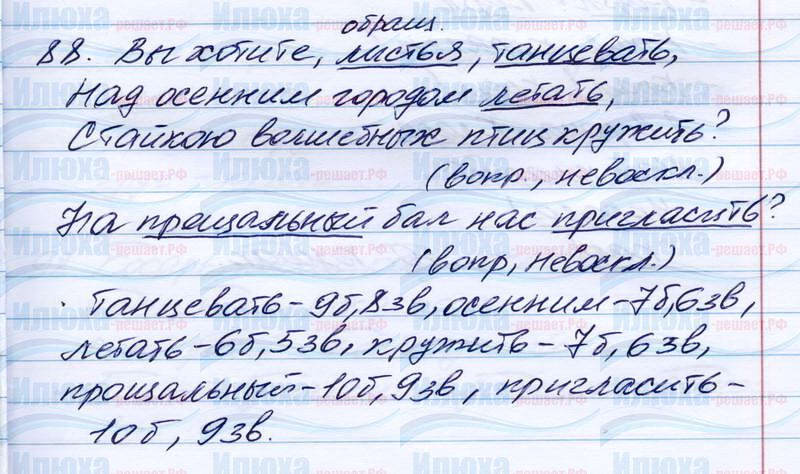 обращ.
88. Вы хотите, листья, танцевать,
Над осенним городом летать,
Стайкою волшебных птиц кружить?
(вопр., невоскл.)
На прощальный бал нас пригласить?
(вопр, невоскл.)
Танцевать - 9б, 8зв, осенним - 7б, 6зв,
летать - 6б, 5зв, кружить - 7б, 6зв,
прощальный - 10б, 9зв, пригласить -
10б, 9зв.